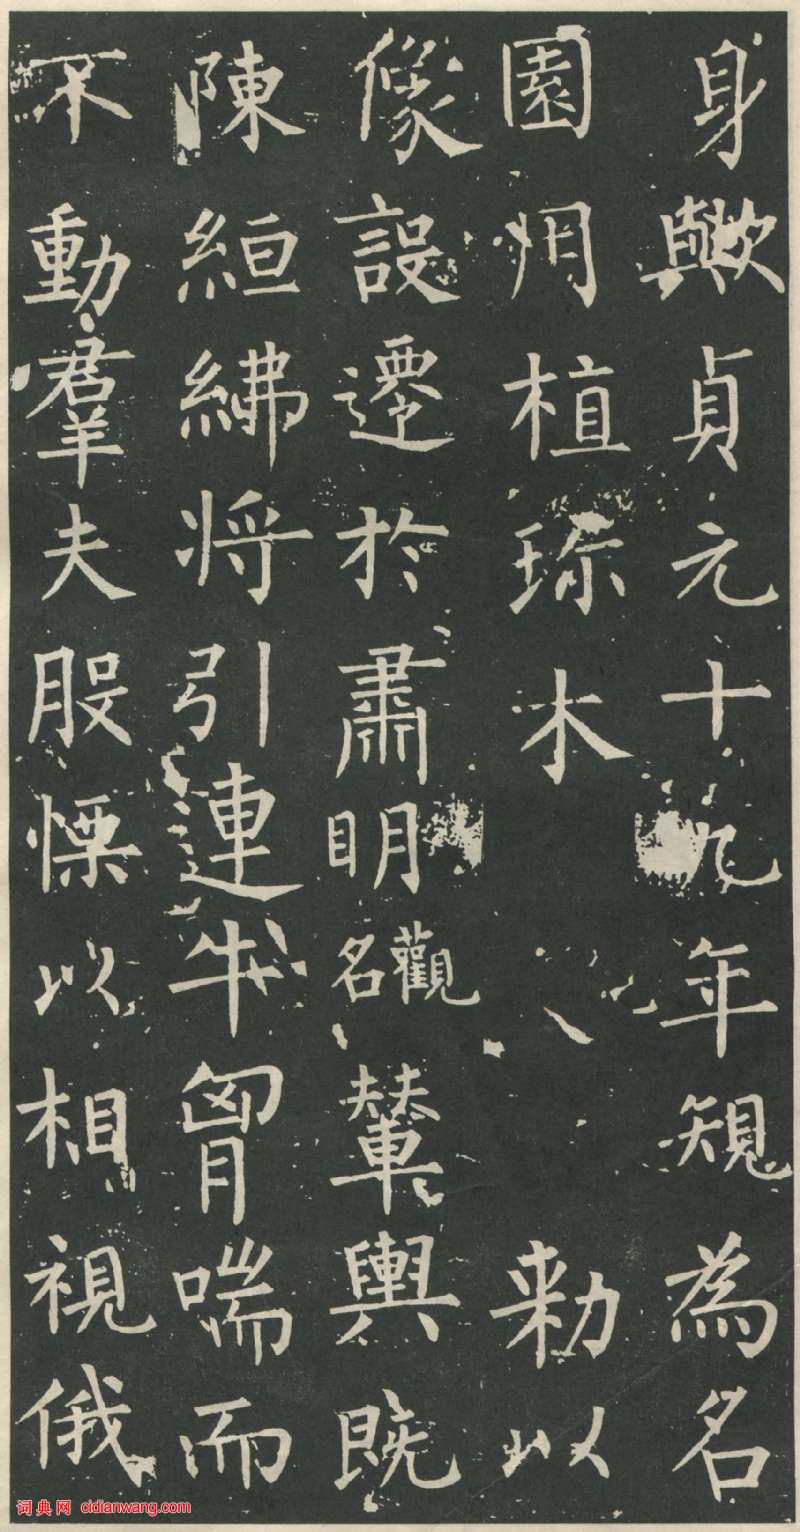 身歟貞元十九年規為名
園用植珎木 勑以
像設遷於肅明觀名輦輿既
陳絙紼將引連牛胷喘而
不動羣夫股慄以相視俄
词典网 cidianwang.com